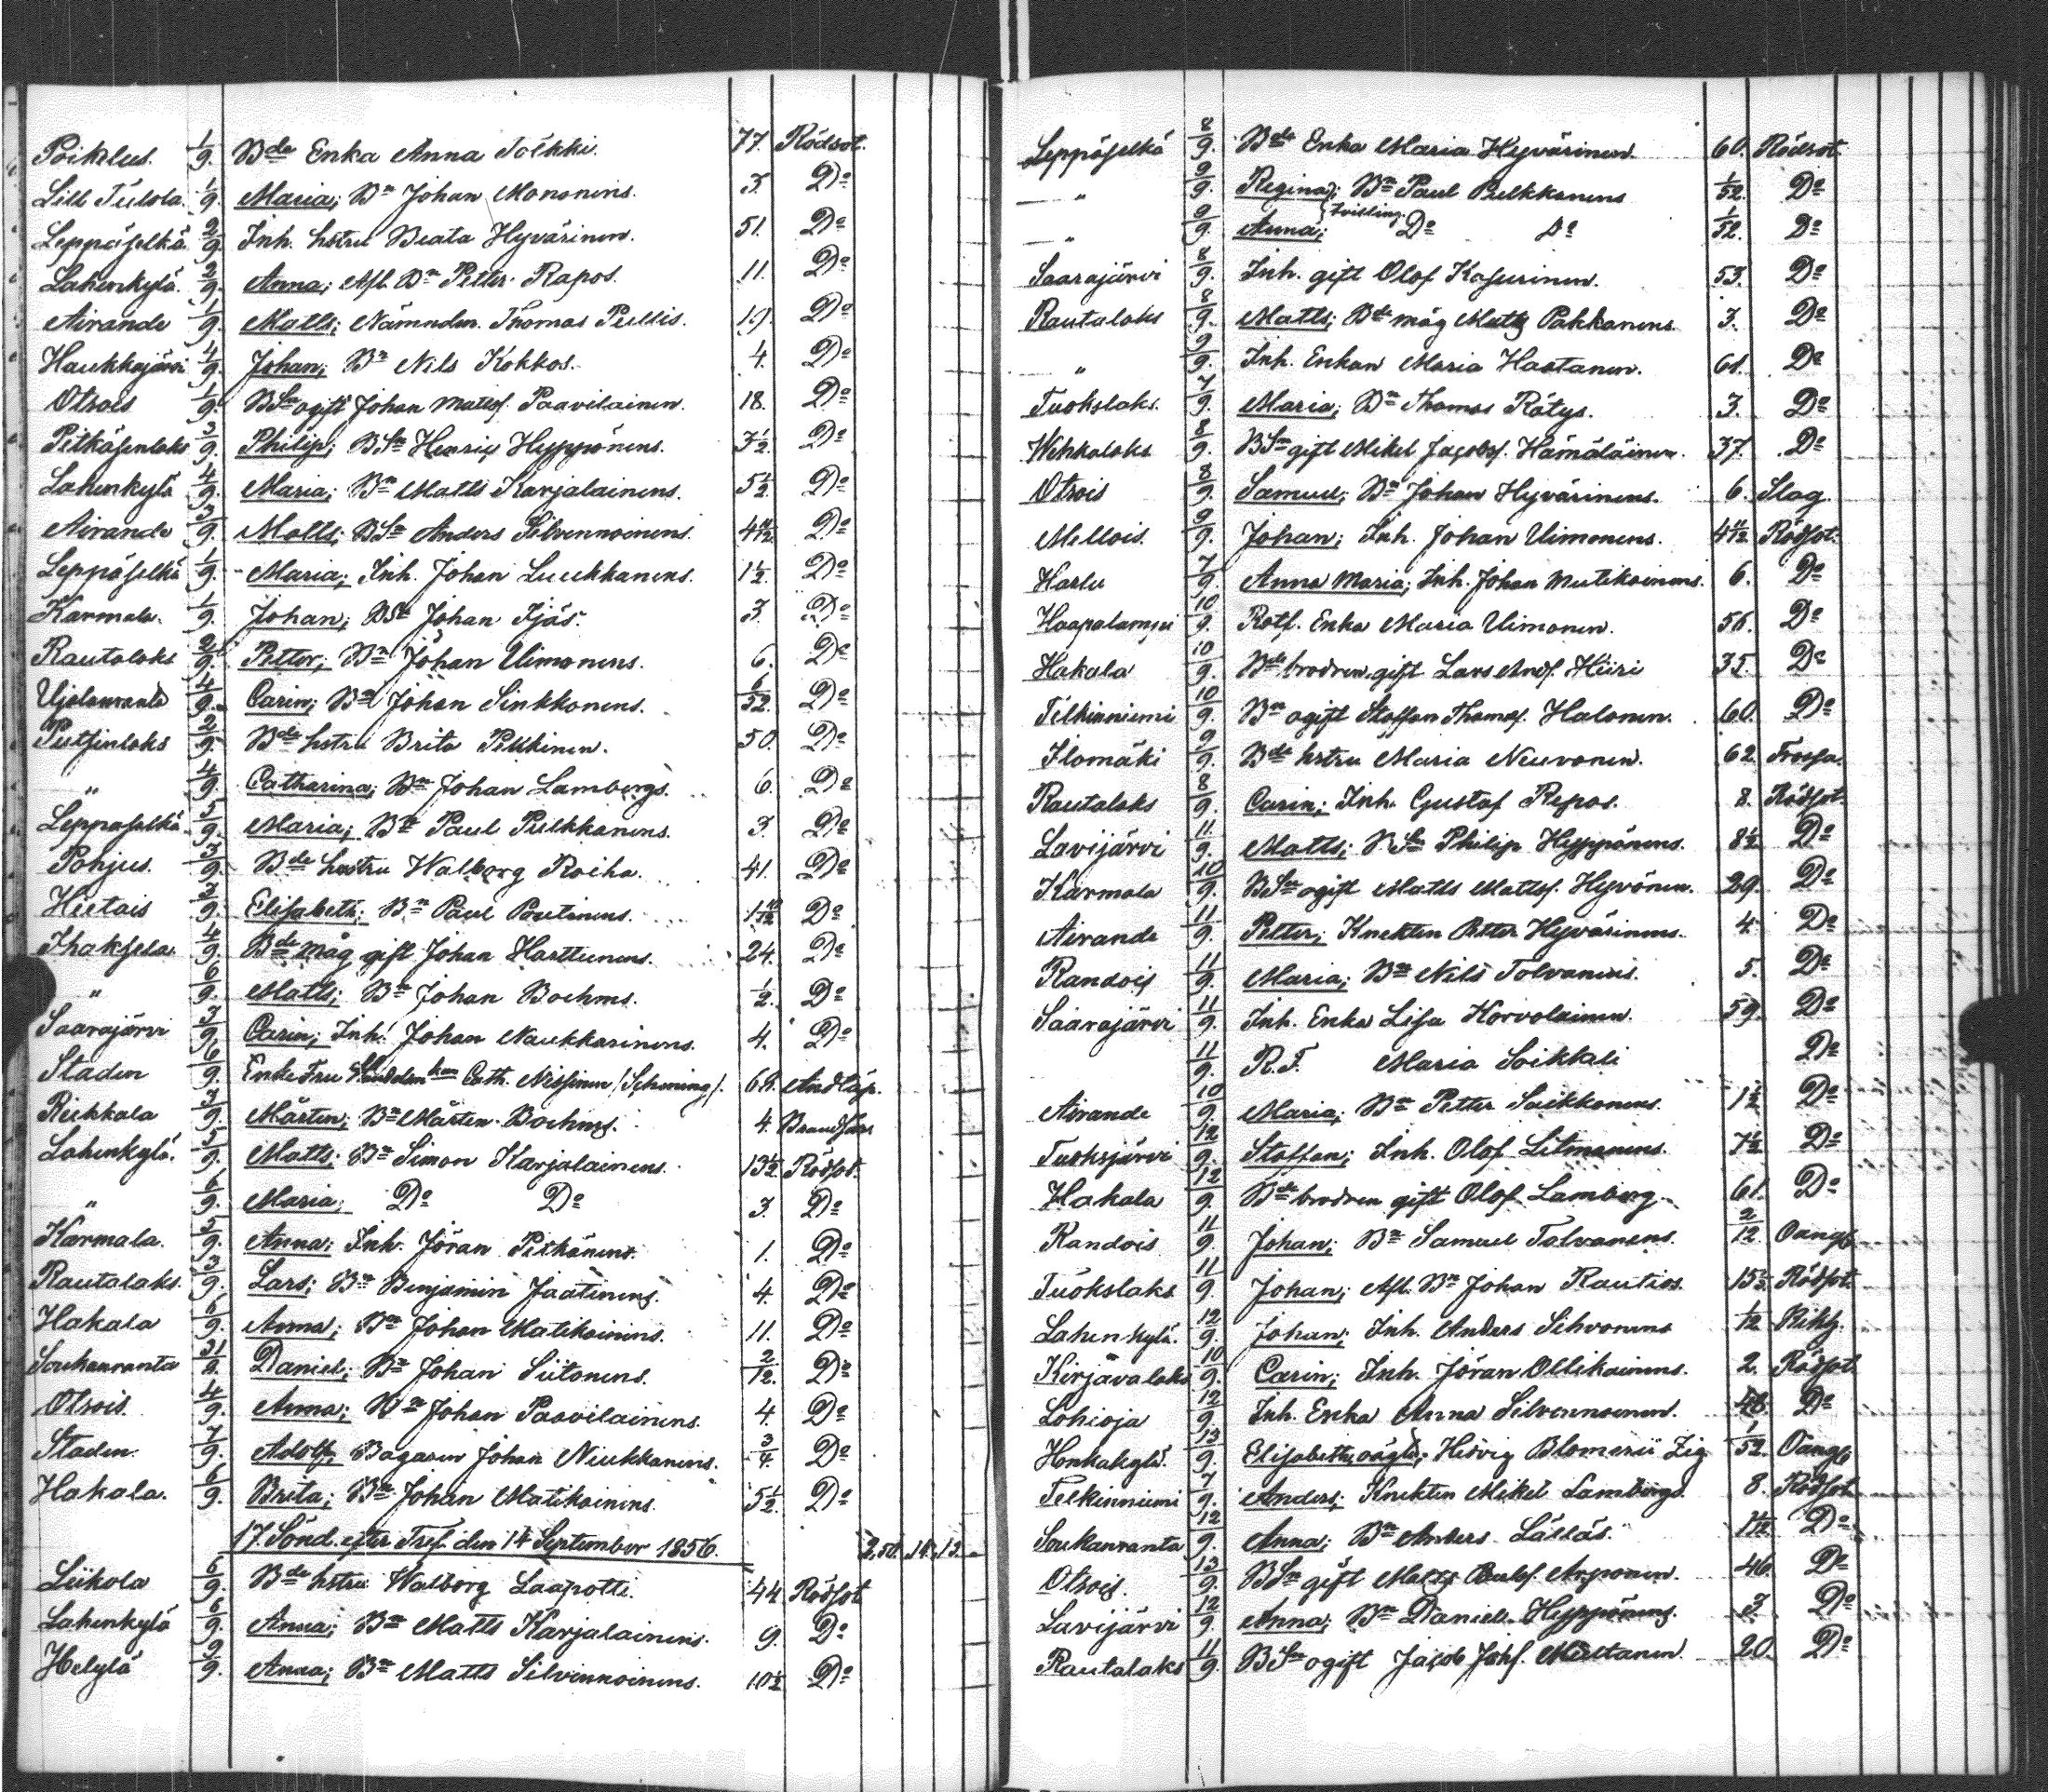 Poikelus. 1/9. Bde Enka Anna Toikki. 77. Rödsot.
Lill Tulola. 1/9. Maria; Bn Johan Mononens. 3. Do
Leppäselkä 2/9. Inh. hstru Beata Hyvärinen. 51. Do
Lahenkylä. 2/9. Anna; Afl. Bn Petter Rapos. 11. Do
Airande 1/9. Matts; Nämnden. Thomas Pullis. 19. Do
Haukkajärvi 4/9. Johan; Bn Nils Kokkos. 4. Do
Otrois 1/9. BSn ogift Johan Mattss. Paavilainen. 18. Do
Pitkäsenlaks 3/9. Philip; BSn Henric Hyppönens. 3½. Do
Lahenkylä 4/9. Maria; Bn Matts Karjalainens. 5½. Do
Airande 3/9. Matts; BSn Anders Silvennoinens. 4 11/12. Do
Leppäselkä 1/9. Maria; Inh. Johan Luukkanens. 1½. Do
Karmala. 1/9. Johan; BSn Johan Ijäs. 3. Do
Rautalaks 2/9. Petter; Bn Johan Uimonens. 6. Do
Ujalanranta 4/9. Carin; Bn Johan Sinkkonens. 6/52. Do
Putsinlaks 2/9. Bde hstru Brita Pekkinen. 50. Do
" 4/9. Catharina; Bn Johan Lambergs. 6. Do
Leppäselkä 5/9. Maria; Bn Paul Pulkkanens. 3. Do
Pohjus. 3/9. Bde hustru Walborg Roiha. 41. Do
Hietois 3/9. Elisabeth; Bn Paul Poutinens. 1 10/12 Do
Ihaksela. 4/9. Bde måg gift Johan Harttunens. 24. Do
" 6/9. Matts; Bn Johan Boehms. ½. Do
Saarajärvi 3/9. Carin; Inh. Johan Naukkarinens. 4. Do
Staden 6/9. Enke Fru Cath. Nissinen (Schening). 68. Andtäp.
Riekkala 3/9. Mårten; Bn Mårten Boehms. 4. Brandsår.
Lahenkylä. 5/9. Matts; Bn Simon Karjalainens. 13½. Rödsot.
" 6/9. Maria; Do Do 3. Do
Karmala. 5/9. Anna; Inh. Jöran Pitkänens. 1. Do
Rautalaks. 3/9. Lars; Bn Benjamin Jaatinens. 4. Do
Hakala 6/9. Anna; Bn Johan Matikainens. 11. Do
Soukanranta 31/8. Daniel; Bn Johan Siitonens. 2/12. Do
Otrois. 4/9. Anna; Bn Johan Paavilainens. 4. Do
Staden. 7/9. Adolf; Bagaren Johan Niukkanens. 3/4. Do
Hakala. 6/9. Brita; Bn Johan Matikainens. 5½. Do
17. Sönd. efter Tref. den 14 September 1856. 2,50. 14. 13.
Liikola 6/9. Bde hstru Walborg Laapotti. 44 Rödsot
Lahenkylä 6/9. Anna; Bn Matts Karjalainens. 9. Do
Helylä 9/9. Anna; Bn Matts Silvennoinens. 10½ Do
Leppäselkä 8/9. Bde Enka Maria Hyvärinen. 60. Rödsot.
" 9/9. Regina; Bn Paul Pulkkanens 1/52. Do
" 9/9. Anna; tvilling. Do Do 1/52. Do
Saarajärvi 8/9. Inh. gift Olof Kasurinen. 53. Do
Rautalaks 8/9. Matts; Bde måg Matts Pakkanens 3. Do
" 9/9. Inh. Enkan Maria Hastanen. 61. Do
Tuokslaks. 7/9. Maria; Bn Thomas Rätys. 3. Do
Wehkalaks 8/9. BSn gift Mikel Jacobss. Hämäläinen. 37. Do
Otrois 8/9. Samuel; Bn Johan Hyvärinens. 6. Slag.
Mellois. 9/9. Johan; Inh. Johan Uimonens. 4 11/12 Rödsot.
Harlu 7/9. Anna Maria; Inh. Johan Mutikainens. 6. Do
Haapalampi 10/9. Rotf. Enka Maria Uimonen. 56. Do
Hakala 10/9. Bde brodren gift Lars Ands. Hiiri 35. Do
Telkinniemi 10/9. Bn ogift Staffan Thomss. Halonen. 60. Do
Ilomäki 9/9. Bde hstru Maria Neuvonen. 62. Frossa.
Rautalaks 8/9. Carin; Inh. Gustaf Repos. 8. Rödsot.
Lavijärvi 11/9. Matts; BSn Philip Hyppönens. 8½. Do
Karmala 10/9. BSn ogift Matts Mattss. Hyvönen. 29. Do
Airande 11/9. Petter; Knekten Petter Hyvärinens. 4. Do
Randois 11/9. Maria; Bn Nils Tolvanens. 5. Do
Saarajärvi 11/9. Inh. Enka Lisa Horvolainen. 59. Do
11/9. R.F. Maria Soikkeli Do
Airande 10/9. Maria; Bn Petter Saikkonens. 1½. Do
Tuoksjärvi 12/9. Staffan; Inh. Olof Litmanens. 7½. Do
Hakala 12/9. Bde brodren gift Olof Lamberg. 61. Do
Randois 11/9. Johan; Bn Samuel Tolvanens. 2/12 Oangf.
Tuokslaks 11/9. Johan; Afl. Bn Johan Rauties. 15½. Rödsot.
Lahenkylä. 12/9. Johan; Inh. Anders Sihvonens 1/12 Kikh.
Kirjavalaks 10/9. Carin; Inh. Jöran Ollikainens. 2. Rödsot.
Lohioja 12/9. Inh. Enka Anna Silvennoinen. 48. Do
Honkakylä. 13/9. Elisabeth, oägta; Hedvig Blomerii Zig 1/52. Oangf.
Telkinniemi 7/9. Anders; Knekten Mikel Lambergs. 8. Rödsot.
Soukanranta 12/9. Anna; Bn Anders Lälläs. 1½. Do
Otrois. 13/9. BSn gift Matts Arponen. 46. Do
Lavijärvi 12/9. Anna; Bn Daniel Hyppönens. 3. Do
Rautalaks 11/9. BSn ogift Jacob Johs. Multanen. 20. Do